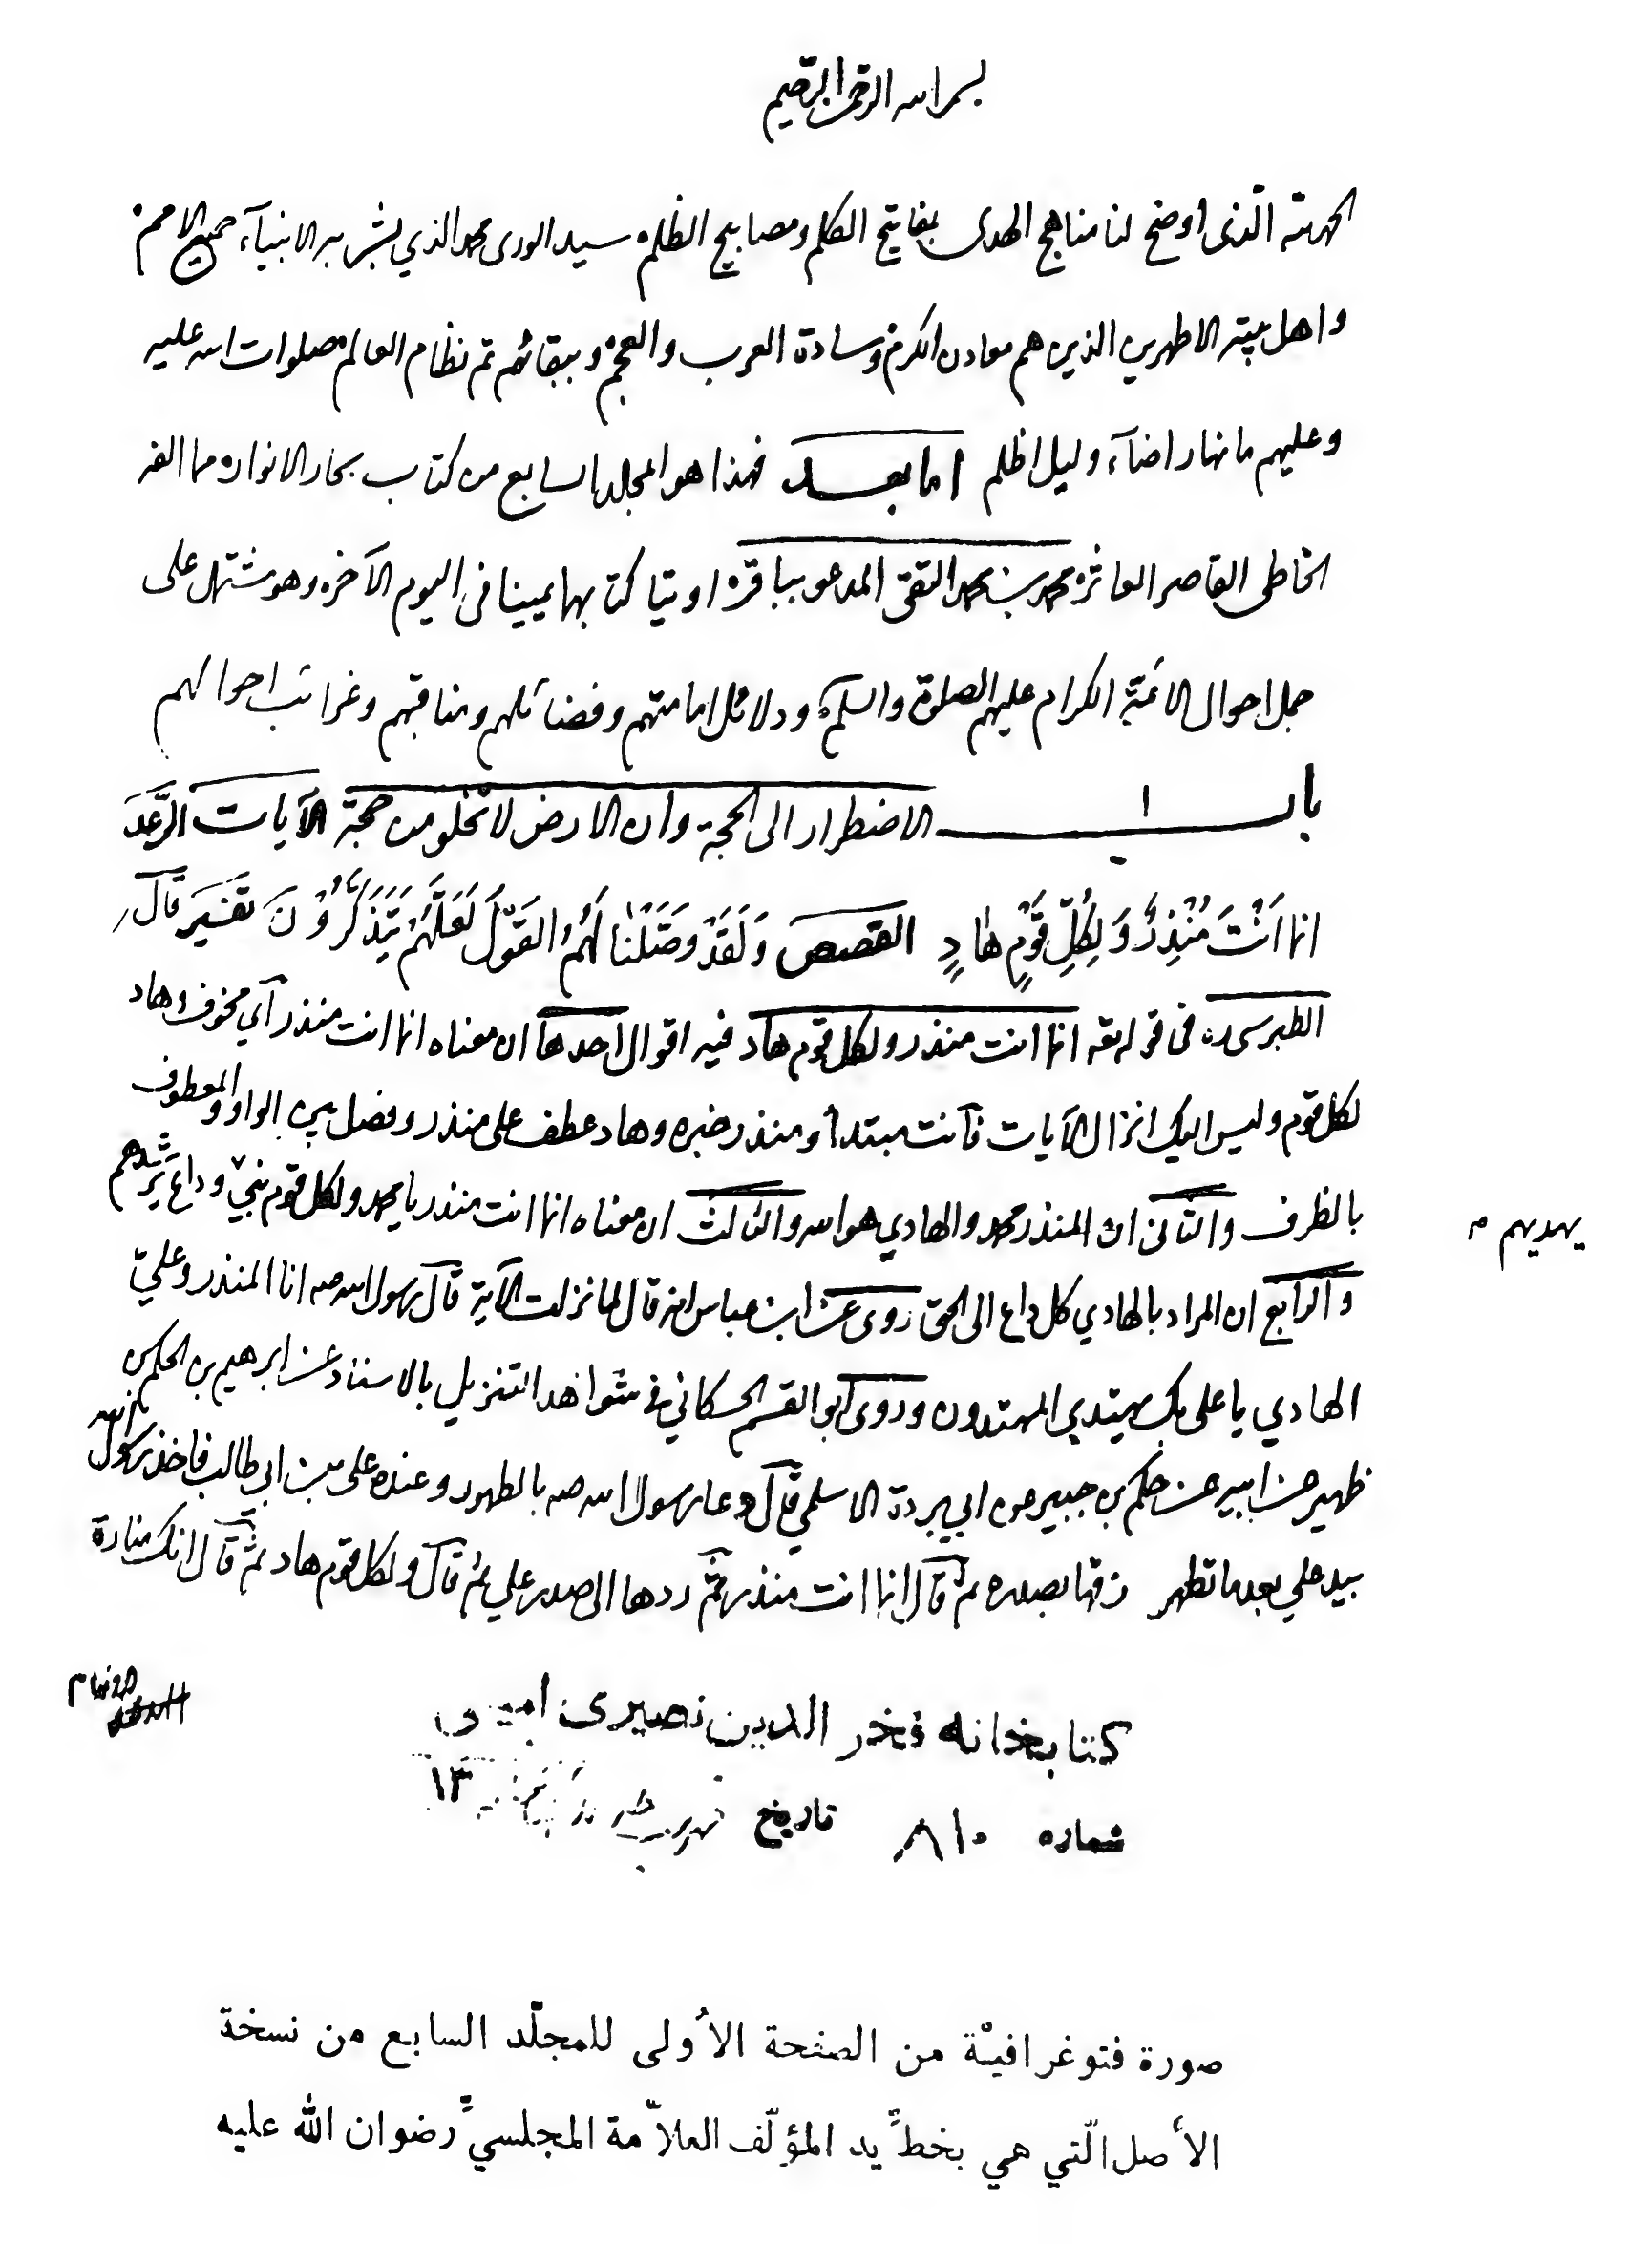 بسم الله الرحمن الرحيم
الحمد لله الّذى اوضح لنا مناهج الهدى بمفاتيح الكلم ومصابيح الظلم سيد الورى محمد الذي بشر به الانبيآء جميع الامم
واهل بيته الاطهرين الذين هم معادن الكرم وسادة العرب والعجم وببقائهم تم نظام العالم صلوات الله عليه
وعليهم ما نهار اضآء وليل اظلم اما بعد فهذا هو المجلد السابع من كتاب بحار الانوار مما الفه
الخاطى القاصر العاثر محمد بن محمد التقى المدعو بباقر اوتيا كتابهما يمينا فى اليوم الآخر وهو مشتمل على
جمل احوال الائمة الكرام عليهم الصلوة والسلم ودلائل امامتهم وفضائلهم ومناقبهم وغرائب احوالهم
باب ا الاضطرار الى الحجة وان الارض لا تخلو من حجة الآيات الرّعد
انما اَنْتَ مُنْذِرٌ وَلِكُلِّ قَوْمٍ هادٍ القصص وَلَقَدْ وَصَّلْنا لَهُمُ القَوْلَ لَعَلَّهُمْ يَتَذَكَّرُونَ تفسير قال
الطبرسى ره فى قوله تعه انما انت منذر ولكل قوم هاد فيه اقوال احدها ان معناه انما انت منذر اى مخوف وهاد
لكل قوم وليس اليك انزال الآيات فانت مبتدأ ومنذر خبره وهاد عطف على منذر وفصل بين الواو والمعطوف
بالظرف والثانى ان المنذر محمد والهادي هو الله والثالث ان معناه انما انت منذر يا محمد ولكل قوم نبىّ وداع يرشدهم
يهديهم
والرابع ان المراد بالهادي كل داع الى الحق روى عن ابن عباس انه قال لما نزلت الآية قال رسول الله صه انا المنذر وعليّ
الهادي يا على بك يهتدي المهتدون وروى ابو القسم الحسكاني في شواهد التنزيل بالاسناد عن ابرهيم بن الحكم بن
ظهير عن ابيه عن حكم بن جبير عن ابي بردة الاسلمي قال دعا رسول الله صه بالطهور وعنده على بن ابي طالب فاخذ رسول الله
بيد علي بعد ما تطهر فالزقها بصدره ثم قال انما انت منذر ثم ردها الى صدر علي ثم قال ولكل قوم هاد ثم قال انك منارة
كتابخانه فخر الدين نصيرى امينى
شماره ٨١٠ تاريخ ١٣
صورة فتوغرافيّة من الصفحة الأولى للمجلّد السابع من نسخة
الأصل الّتي هي بخطّ يد المؤلّف العلاّمة المجلسيّ رضوان الله عليه